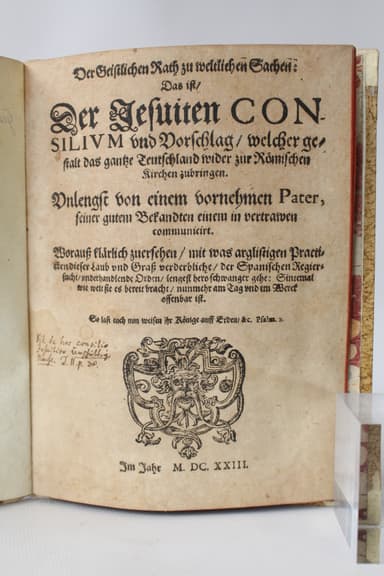 Der Geistlichen Rath zu weltlichen Sachen:
Das ist/
Der Jesuiten CON-
SILIVM vnd Vorschlag/ welcher ge-
stalt das gantze Teutschland wider zur Römischen
Kirchen zubringen.
Vnlengst von einem vornehmen Pater,
seiner gutem Bekandten einem in vertrawen
communicirt.
Worauß klärlich zuersehen/ mit was arglistigen Practi-
cken dieser Laub vnd Graß verderbliche/ der Spanischen Regier-
sucht/ vnderhandlende Orden/ lengest hero schwanger gehe: Sintemal
wie weit sie es bereit bracht/ nunmehr am Tag vnd im Werck
offenbar ist.
So last euch nun weisen ihr Könige auff Erden/ &c. Psalm. 2.
de hoc consilio
Im Jahr M. DC. XXIII.